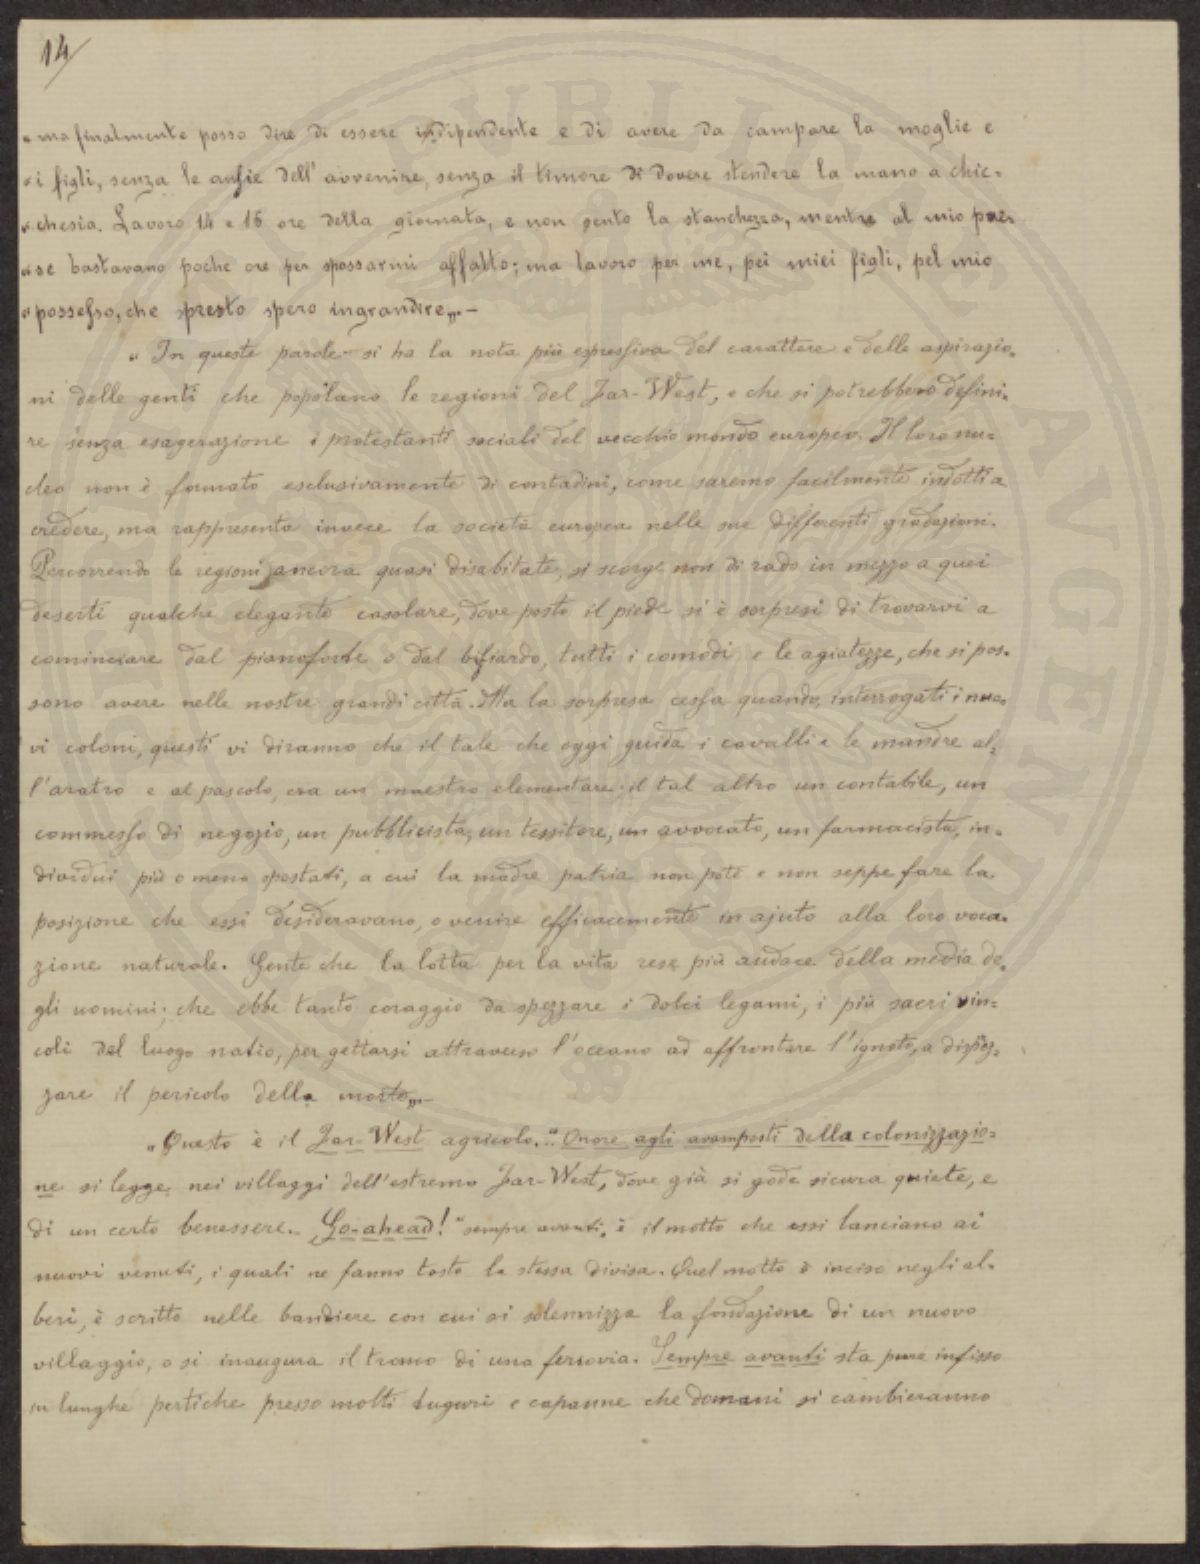 14/
« ma finalmente posso dire di essere indipendente e di avere da campare la moglie e
« i figli, senza le ansie dell'avvenire, senza il timore di dovere stendere la mano a chic-
« chesia. Lavoro 14 e 16 ore della giornata, e non sento la stanchezza, mentre al mio pae-
« se bastavano poche ore per spossarmi affatto; ma lavoro per me, pei miei figli, pel mio
« possesso, che presto spero ingrandire„.-
« In queste parole si ha la nota più espressiva del carattere e delle aspirazio-
ni delle genti che popolano le regioni del Far-West, e che si potrebbero defini-
re senza esagerazione i protestanti sociali del vecchio mondo europeo. Il loro nu-
cleo non è formato esclusivamente di contadini, come saremo facilmente indotti a
credere, ma rappresenta invece la società europea nelle sue differenti gradazioni.
Percorrendo le regioni ancora quasi disabitate, si scorge non di rado in mezzo a quei
deserti qualche elegante casolare, dove posto il piede si è sorpresi di trovarvi a
cominciare dal pianoforte o dal bigliardo, tutti i comodi e le agiatezze, che si pos-
sono avere nelle nostre grandi città. Ma la sorpresa cessa quando, interrogati i nuo-
vi coloni, questi vi diranno che il tale che oggi guida i cavalli e le mandre al-
l'aratro e al pascolo, era un maestro elementare; il tal altro un contabile, un
commesso di negozio, un pubblicista, un tessitore, un avvocato, un farmacista, in-
dividui più o meno spostati, a cui la madre patria non potè e non seppe fare la
posizione che essi desideravano, o venire efficacemente in ajuto alla loro voca-
zione naturale. Gente che la lotta per la vita rese più audace della media de-
gli uomini; che ebbe tanto coraggio da spezzare i dolci legami, i più sacri vin-
coli del luogo natio, per gettarsi attraverso l'oceano ad affrontare l'ignoto, a disprez-
zare il pericolo della morte„.-
« Questo è il Far-West agricolo. " Onore agli avamposti della colonizzazio-
ne si legge nei villaggi dell'estremo Far-West, dove già si gode sicura quiete, e
di un certo benessere. Go-ahead! " sempre avanti, è il motto che essi lanciano ai
nuovi venuti, i quali ne fanno tosto la stessa divisa. Quel motto è inciso negli al-
beri, è scritto nelle bandiere con cui si solennizza la fondazione di un nuovo
villaggio, o si inaugura il tronco di una ferrovia. Sempre avanti sta pure infisso
su lunghe pertiche presso molti tuguri e capanne che domani si cambieranno